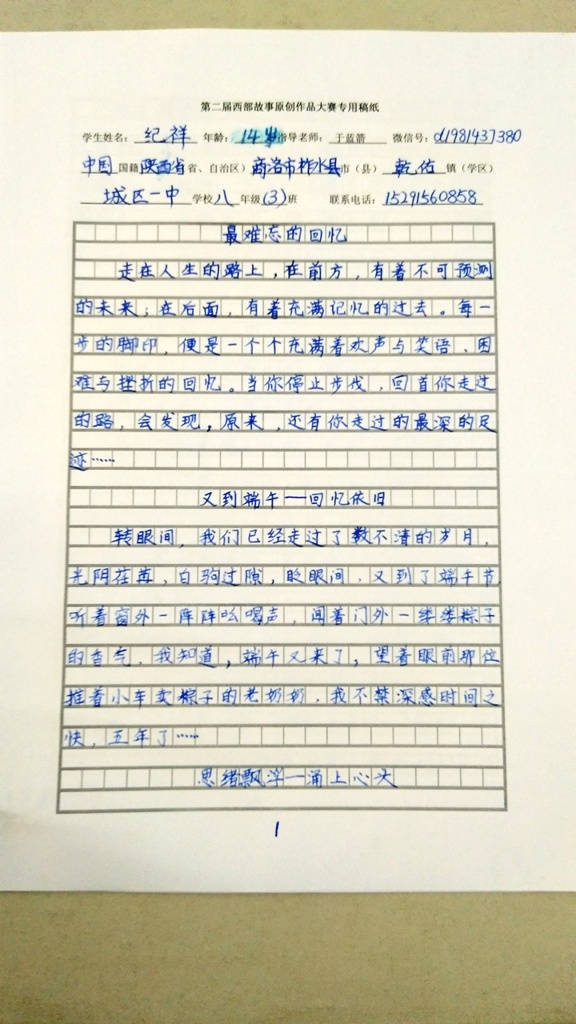 第二届西部故事原创作品大赛专用稿纸
学生姓名：纪祥 年龄：14岁 指导老师：于蓝箭 微信号：d1981437380
中国国籍 陕西省省、自治区）商洛市柞水县市（县）乾佑镇（学区）
城区一中学校八年级(3)班 联系电话：15291560858
最难忘的回忆
走在人生的路上，在前方，有着不可预测
的未来；在后面，有着充满记忆的过去。每一
步的脚印，便是一个个充满着欢声与笑语、困
难与挫折的回忆。当你停止步伐，回首你走过
的路，会发现，原来，还有你走过的最深的足
迹……
又到端午——回忆依旧
转眼间，我们已经走过了数不清的岁月，
光阴荏苒，白驹过隙，眨眼间，又到了端午节，
听着窗外一阵阵吆喝声，闻着门外一缕缕粽子
的香气，我知道，端午又来了，望着眼前那位
推着小车卖粽子的老奶奶，我不禁深感时间之
快，五年了……
思绪飘浮—涌上心头
1